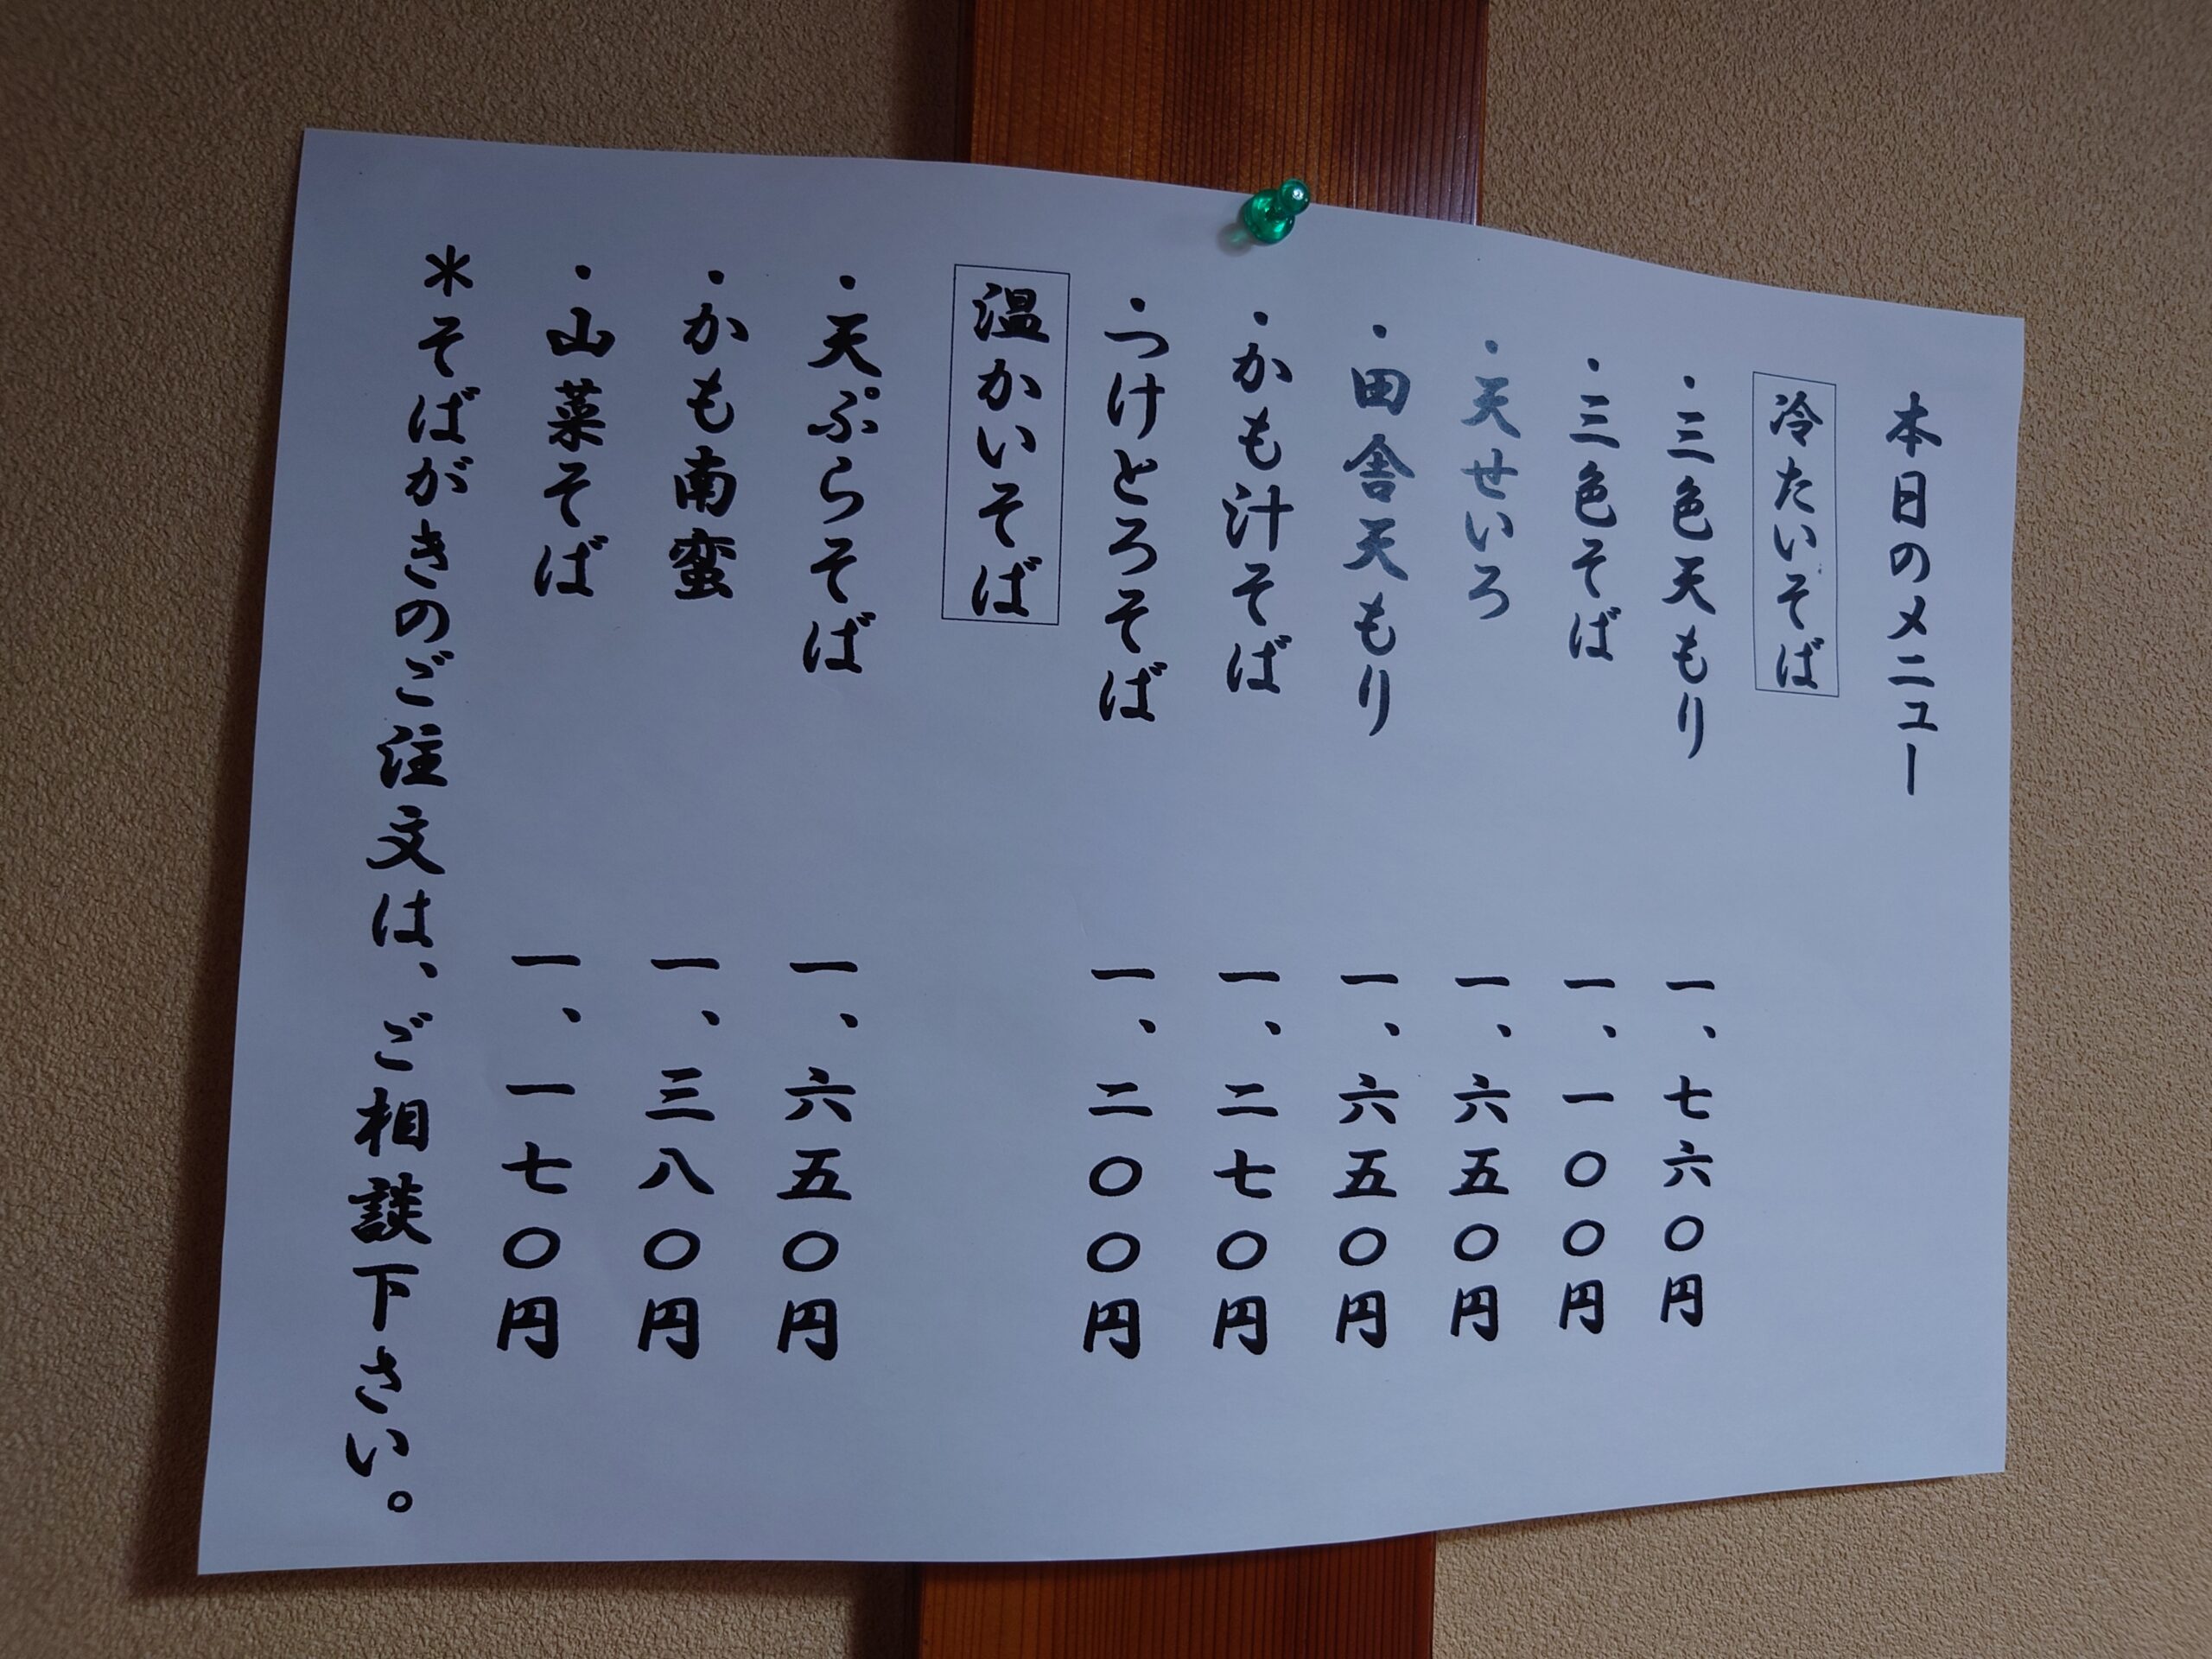 本日のメニュー
冷たいそば
・三色天もり 一、七六〇円
・三色そば 一、一〇〇円
・天せいろ 一、六五〇円
・田舎天もり 一、六五〇円
・かも汁そば 一、二七〇円
・つけとろそば 一、二〇〇円
温かいそば
・天ぷらそば 一、六五〇円
・かも南蛮 一、三八〇円
・山菜そば 一、一七〇円
＊そばがきのご注文は、ご相談下さい。